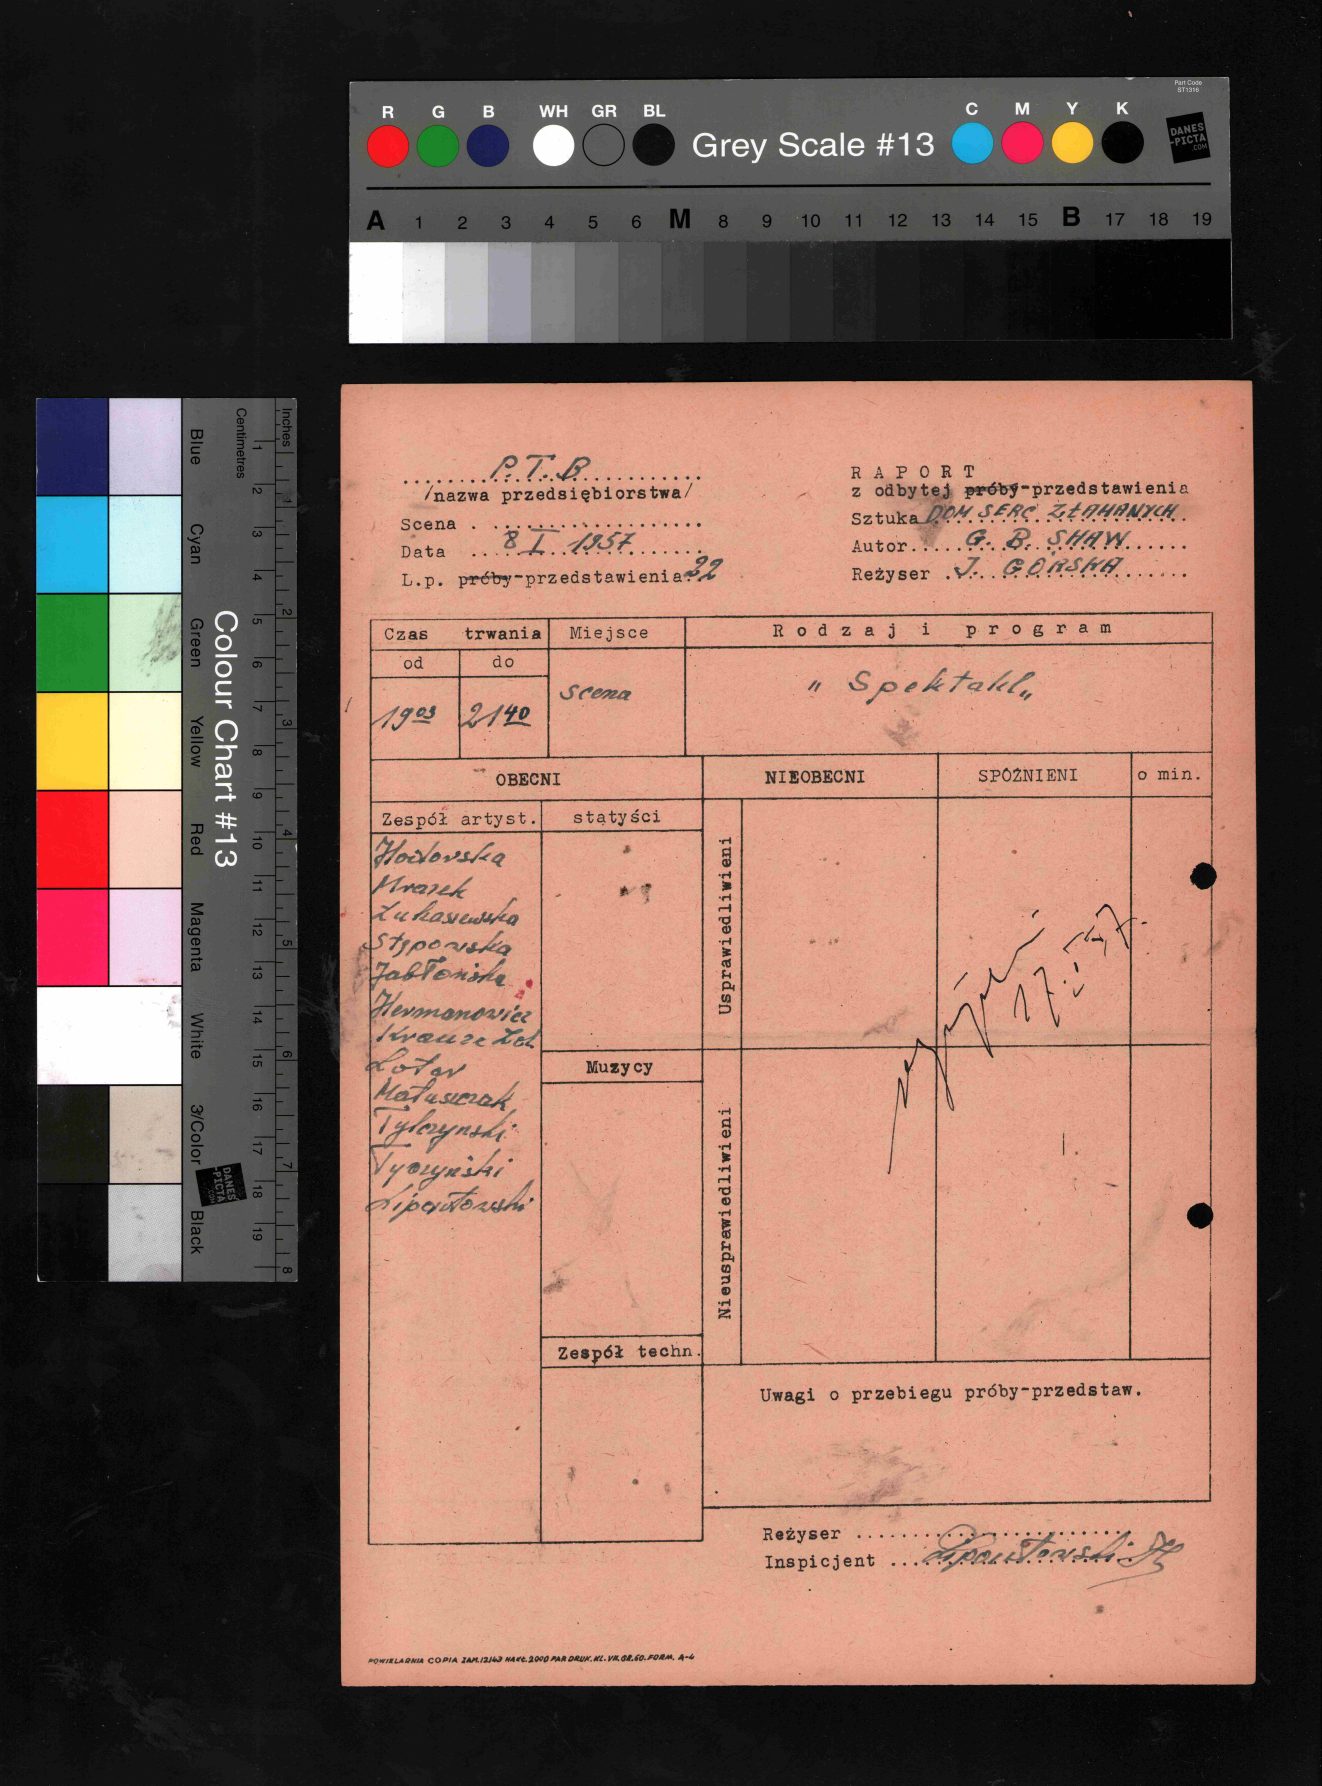 Part Code
ST1316
R G B WH GR BL Grey Scale #13 C M Y K
DANES
-PICTA
.COM
A 1 2 3 4 5 6 M 8 9 10 11 12 13 14 15 B 17 18 19
Colour Chart #13
Blue Cyan Green Yellow Red Magenta White 3/Color Black
Centimetres
1 2 3 4 5 6 7 8 9 10 11 12 13 14 15 16 17 18 19
Inches
1 2 3 4 5 6 7 8
DANES
-PICTA
.COM
P. T. B
/nazwa przedsiębiorstwa/
Scena
Data 8 I 1957
L.p. próby-przedstawienia 22
R A P O R T
z odbytej próby-przedstawienia
Sztuka DOM SERC ZŁAMANYCH
Autor G. B. SHAW
Reżyser J. GÓRSKA
Czas trwania Miejsce Rodzaj i program
od do
19 03 21 40 scena „Spektakl„
OBECNI NIEOBECNI SPÓŹNIENI o min.
Zespół artyst. statyści
Usprawiedliwieni
Hodorska
Mrazek
Łukaszewska
Stępowska
Jabłońska
Hermanowicz
Krauze
Lotar
Matuszczak
Tylczynski
Tyczyński
Lipowtowski
17.I.57.
Muzycy
Nieusprawiedliwieni
Zespół techn.
Uwagi o przebiegu próby-przedstaw.
Reżyser
Inspicjent Lipowtowski
POWIELARNIA COPIA ZAM. 12143 NAKŁ. 2000 PAP. DRUK. KL. VII. GR. 60. FORM. A-4